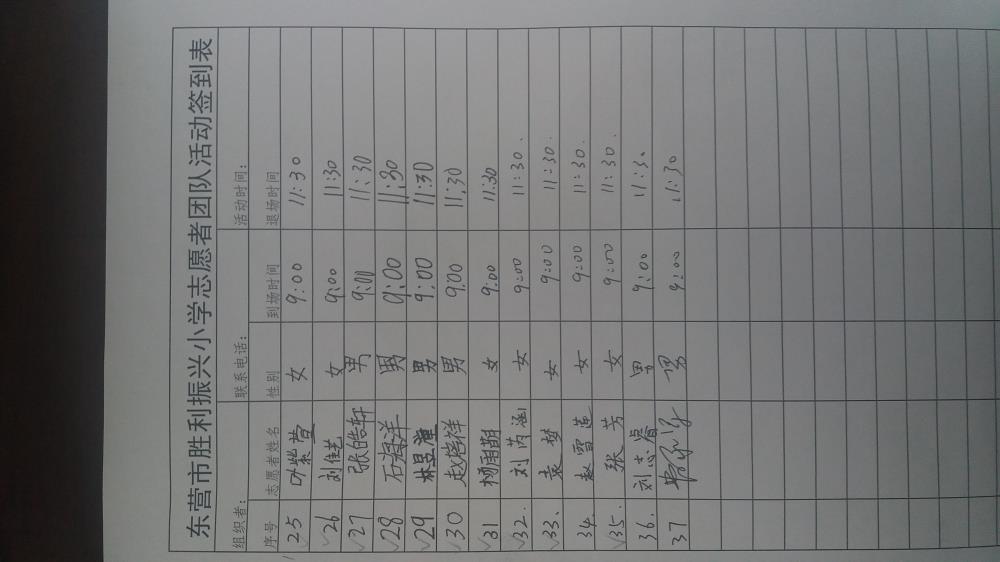 东营市胜利振兴小学志愿者团队活动签到表
组织者： 联系电话： 活动时间：
序号 志愿者姓名 性别 到场时间 退场时间
√25 叶紫萱 女 9:00 11:30
√26 刘佳艺 女 9:00 11:30
√27 张皓轩 男 9:00 11:30
√28 石海洋 男 9:00 11:30
√29 林昱潼 男 9:00 11:30
√30 赵培祥 男 9:00 11:30
√31 杨雨萌 女 9:00 11:30
√32. 刘芮涵 女 9:00 11:30.
√33、 袁梦 女 9:00 11:30.
34. 赵雪莲 女 9:00 11:30.
√35. 张芳 女 9:00 11:30.
36. 刘志睿 男 9:00 11:30
37 男 9:00 11:30